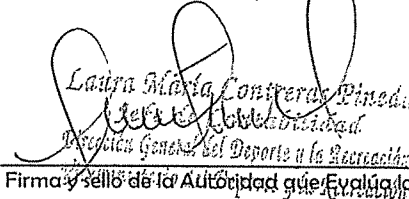 Laura María Contreras Pineda
Jefe de Contabilidad
Dirección General del Deporte y la Recreación
Firma y sello de la Autoridad que Evalúa la